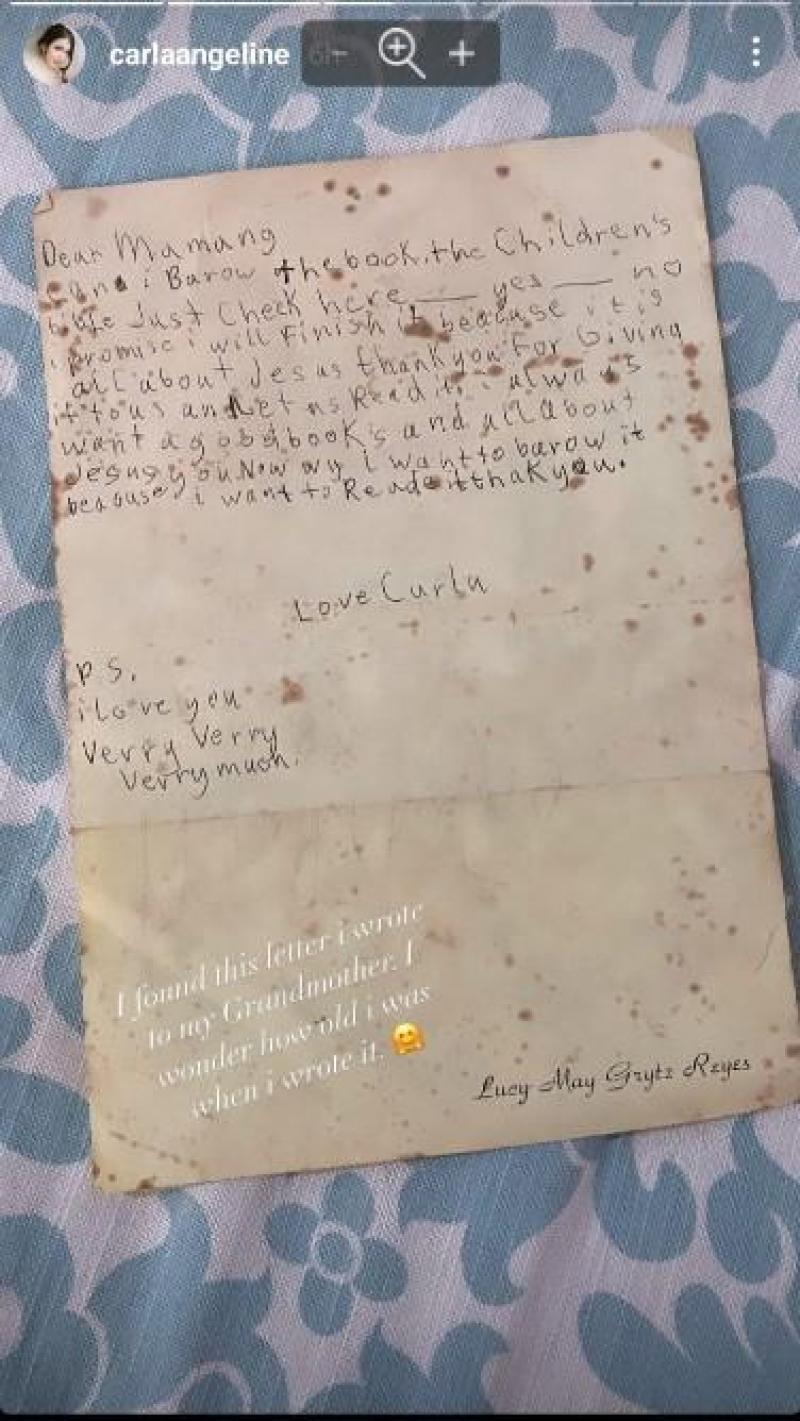 carlaangeline 6h
Dear Mamang
can i Barow the book, the Children's
bible Just Check here, ___ yes ___ no
i promise i will Finish it beacuse it is
all about Jesus thank you For Giving
it to us and Let us Read it, i always
want a good book's and all about
Jesus you Now wy i want to barow it
beacuse i want to Read it thak you.
Love Carla
P S,
i Love you
Verry Verry
Verry much.
I found this letter i wrote
to my Grandmother. I
wonder how old i was
when i wrote it. 🤗
Lucy May Gryte Reyes